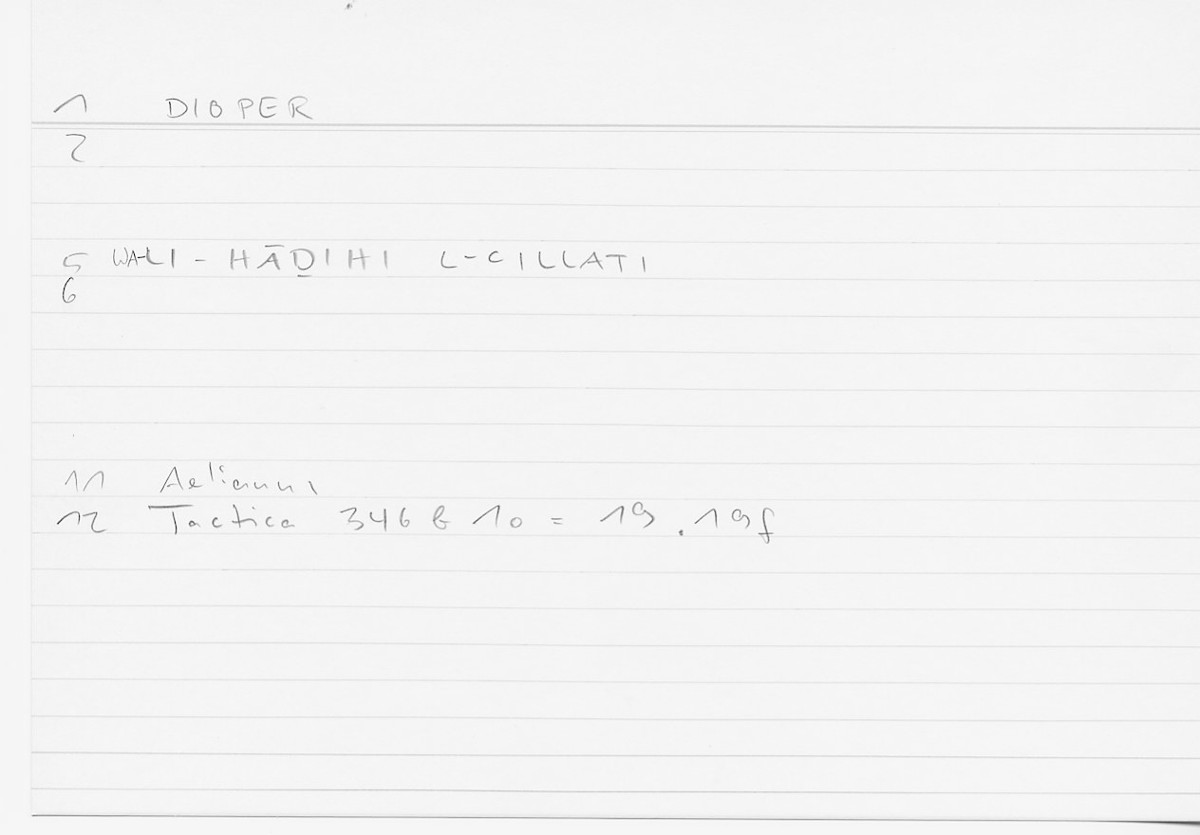 1 DIOPER
2
5 WA-LI-HĀḎIHI L-CILLATI
6
11 Aelianus
12 Tactica 346 b 10 = 19.19f